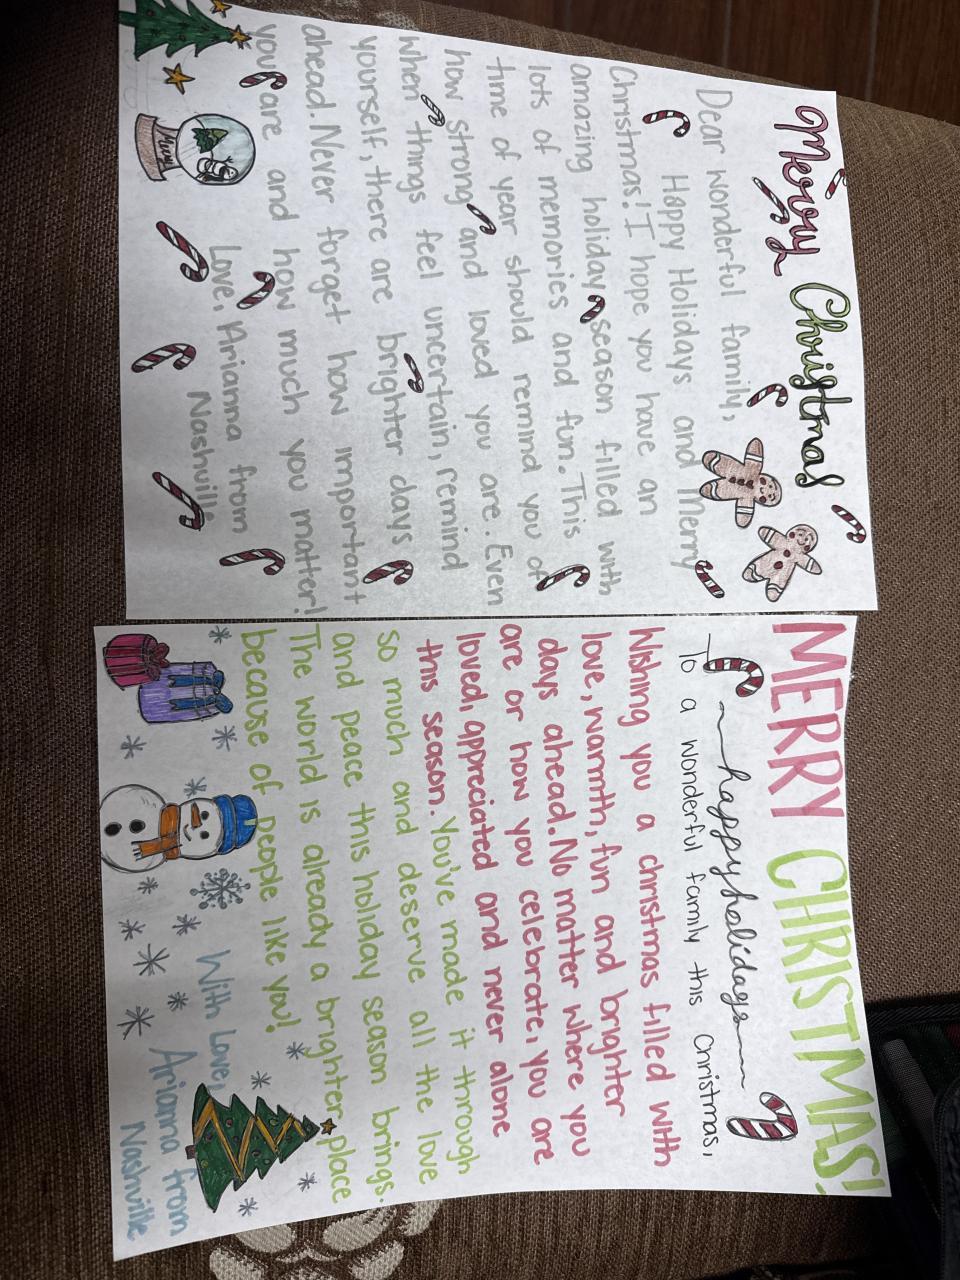 Merry Christmas
Dear wonderful family,
Happy Holidays and Merry
Christmas! I hope you have an
amazing holiday season filled with
lots of memories and fun. This
time of year should remind you of
how strong and loved you are. Even
when things feel uncertain, remind
yourself, there are brighter days
ahead. Never forget how important
you are and how much you matter!
Love, Arianna from
Nashville
MERRY CHRISTMAS!
happy holidays
To a wonderful family this Christmas,
Wishing you a christmas filled with
love, warmth, fun and brighter
days ahead. No matter where you
are or how you celebrate, you are
loved, appreciated and never alone
this season. You've made it through
so much and deserve all the love
and peace this holiday season brings.
The world is already a brighter place
because of people like you!
With Love,
Arianna from
Nashville